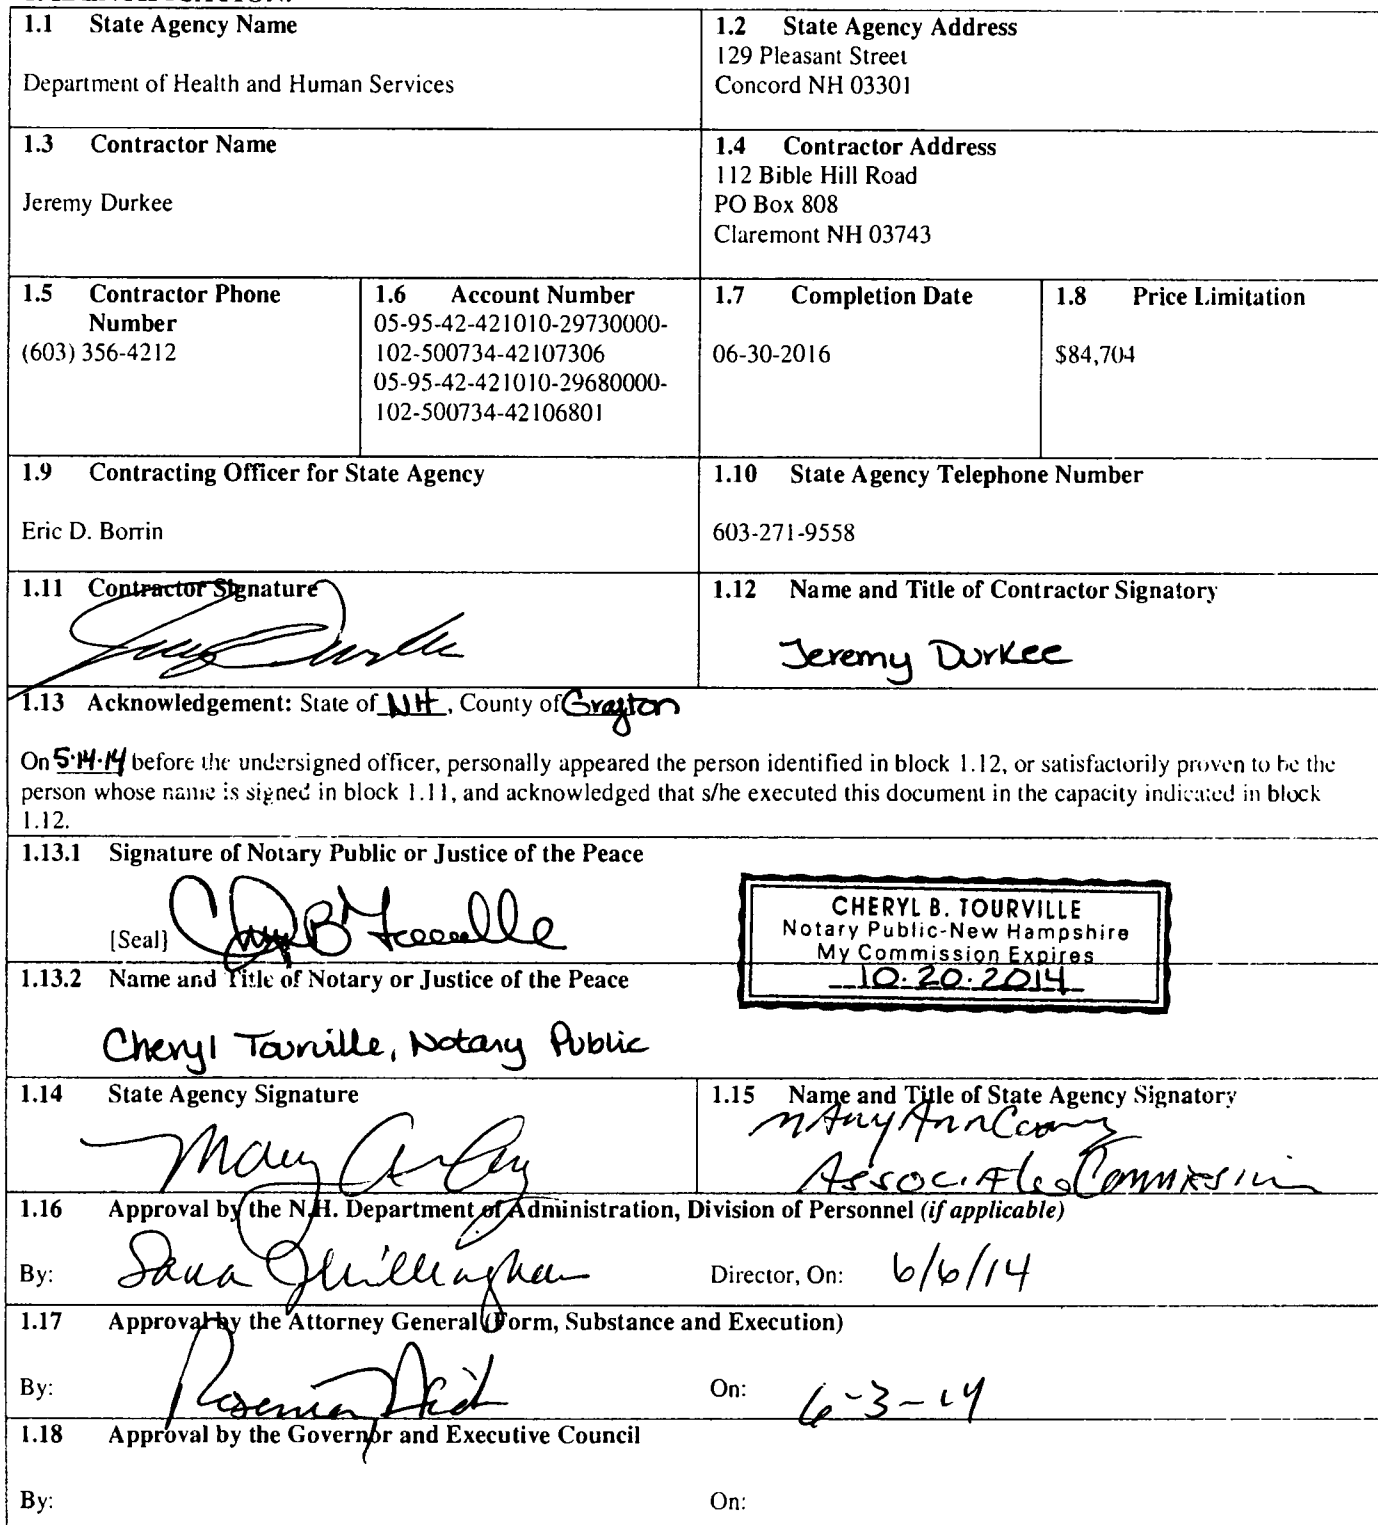 1.1 State Agency Name
Department of Health and Human Services
1.2 State Agency Address
129 Pleasant Street
Concord NH 03301
1.3 Contractor Name
Jeremy Durkee
1.4 Contractor Address
112 Bible Hill Road
PO Box 808
Claremont NH 03743
1.5 Contractor Phone
Number
(603) 356-4212
1.6 Account Number
05-95-42-421010-29730000-
102-500734-42107306
05-95-42-421010-29680000-
102-500734-42106801
1.7 Completion Date
06-30-2016
1.8 Price Limitation
$84,704
1.9 Contracting Officer for State Agency
Eric D. Borrin
1.10 State Agency Telephone Number
603-271-9558
1.11 Contractor Signature
1.12 Name and Title of Contractor Signatory
Jeremy Durkee
1.13 Acknowledgement: State of NH, County of Grafton
On 5.14.14 before the undersigned officer, personally appeared the person identified in block 1.12, or satisfactorily proven to be the
person whose name is signed in block 1.11, and acknowledged that s/he executed this document in the capacity indicated in block
1.12.
1.13.1 Signature of Notary Public or Justice of the Peace
[Seal]
CHERYL B. TOURVILLE
Notary Public-New Hampshire
My Commission Expires
10.20.2014
1.13.2 Name and Title of Notary or Justice of the Peace
Cheryl Tourville, Notary Public
1.14 State Agency Signature
1.15 Name and Title of State Agency Signatory
1.16 Approval by the N.H. Department of Administration, Division of Personnel (if applicable)
By:
Director, On: 6/6/14
1.17 Approval by the Attorney General (Form, Substance and Execution)
By:
On: 6-3-14
1.18 Approval by the Governor and Executive Council
By:
On: